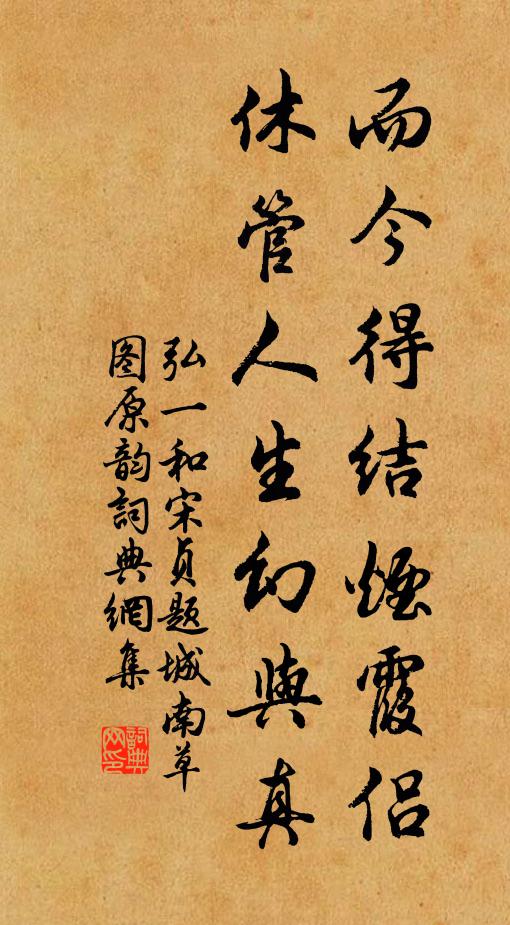 而今得结煙霞侣
休管人生幻與真
弘一和宋贞题城南草
图原韵詞典網集
詞典
网印